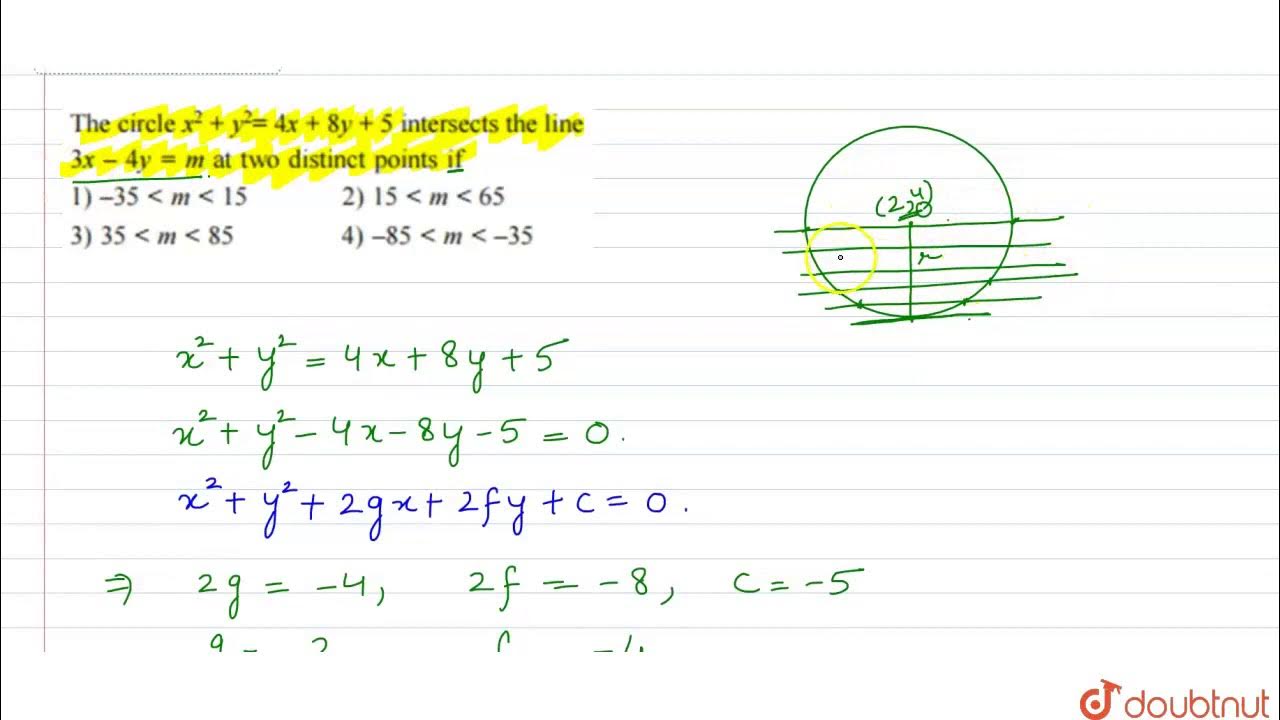 The circle x² + y²= 4x + 8y + 5 intersects the line
3x – 4y = m at two distinct points if
1) –35 < m < 15 2) 15 < m < 65
3) 35 < m < 85 4) –85 < m < –35
(2, 4)
r
x² + y² = 4x + 8y + 5
x² + y² – 4x – 8y – 5 = 0.
x² + y² + 2gx + 2fy + c = 0.
⇒ 2g = –4, 2f = –8, c = –5
doubtnut